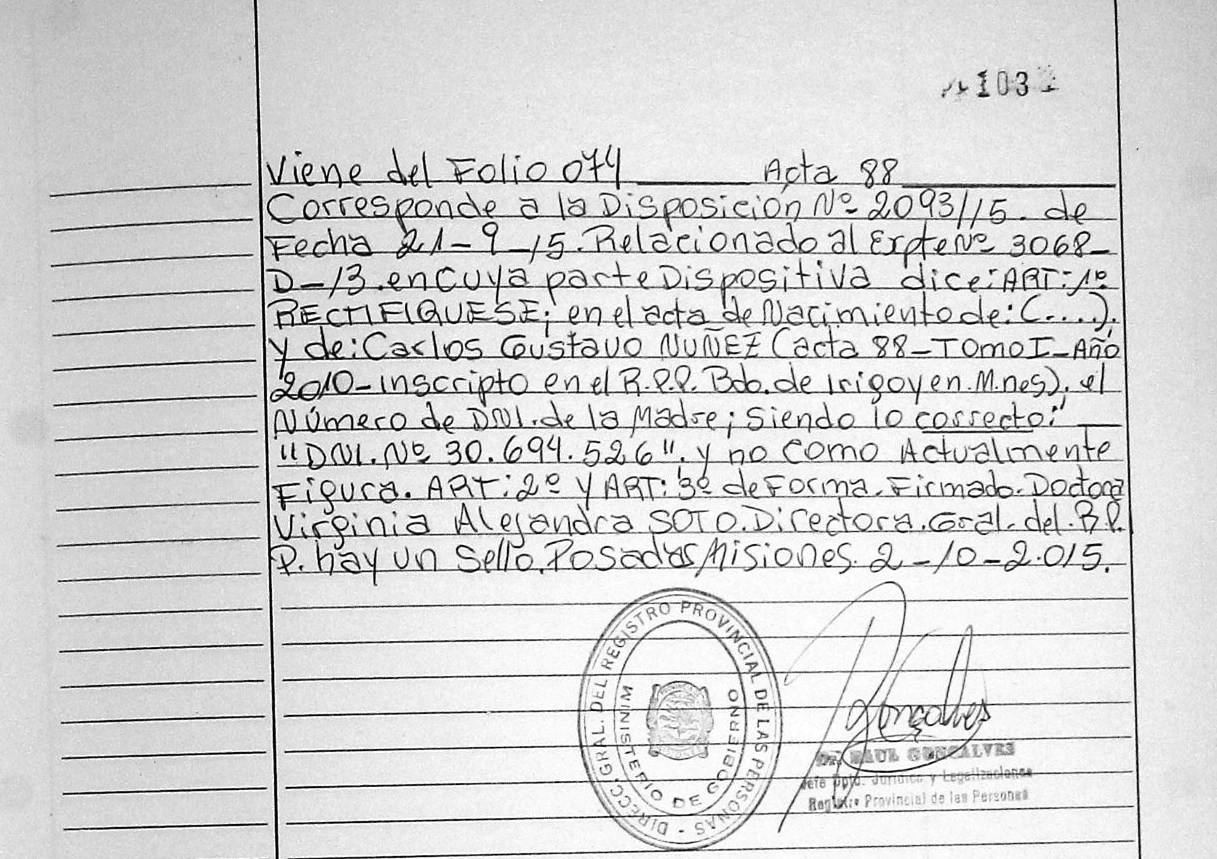 1032
Viene del Folio 074 Acta 88
Corresponde a la Disposición Nº 2093/15. de
Fecha 21-9-15. Relacionado al Expte Nº 3068-
D-13. en cuya parte Dispositiva dice: ART: 1º
RECTIFIQUESE; en el acta de Nacimiento de: (....),
y de: Carlos Gustavo NUÑEZ (acta 88-TOMO I-Año
2010-inscripto en el R.P.P. Bdo. de Irigoyen. M.nes), el
Número de DNI. de la Madre; siendo lo correcto:
"DNI. Nº 30.694.526". y no como Actualmente
Figura. ART: 2º y ART: 3º de Forma. Firmado. Doctora
Virginia Alejandra SOTO. Directora. Gral. del. R.P.
P. hay un Sello. Posadas Misiones. 2-10-2.015.
DIRECC. GRAL. DEL REGISTRO PROVINCIAL DE LAS PERSONAS
MINISTERIO DE GOBIERNO
Gonçalves
Dr. RAUL GONCALVES
Jefe Dpto. Jurídico y Legalizaciones
Registro Provincial de las Personas